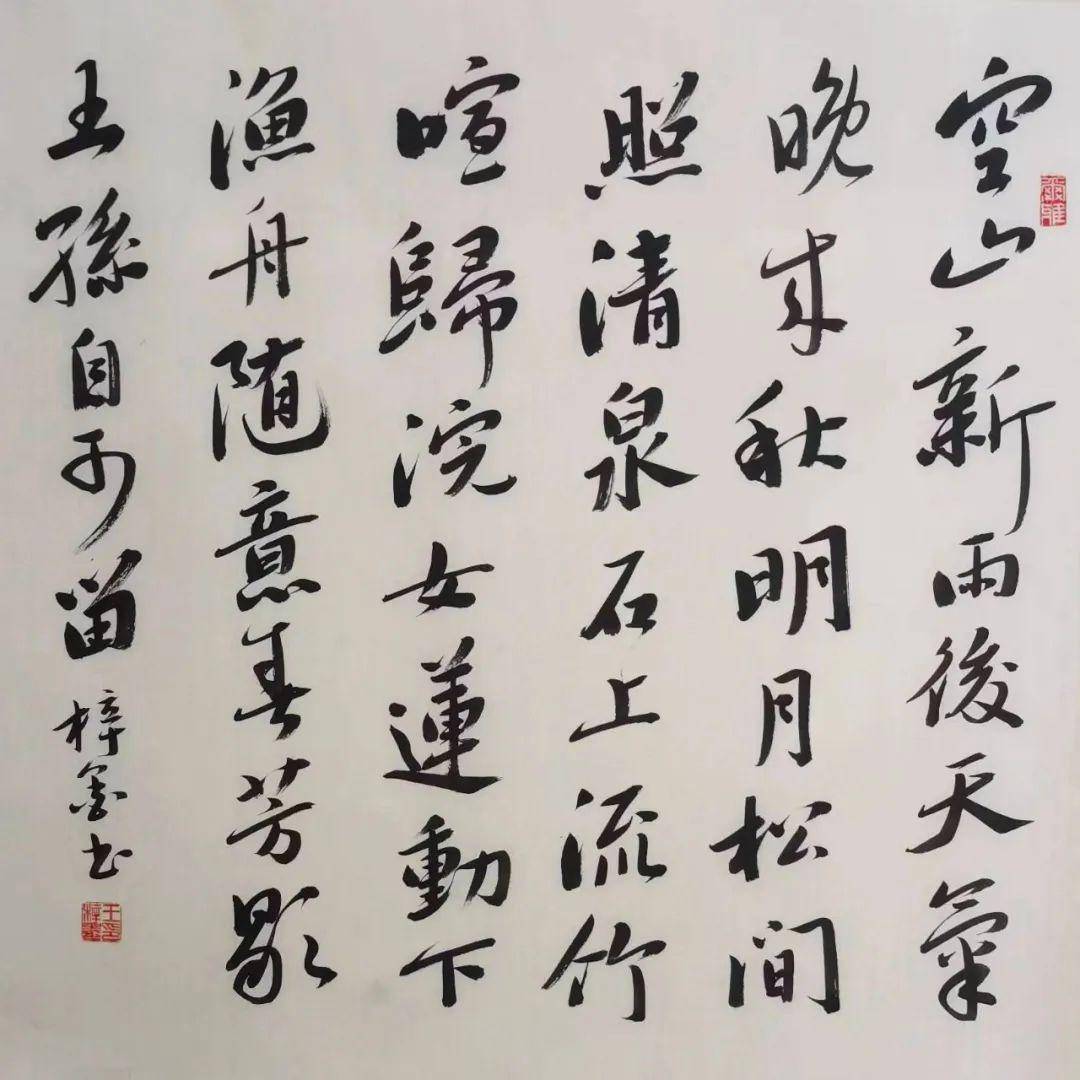 空山新雨後天氣
晚来秋明月松间
照清泉石上流竹
喧歸浣女蓮動下
渔舟随意春芳歇
王孫自可留
梓墨书